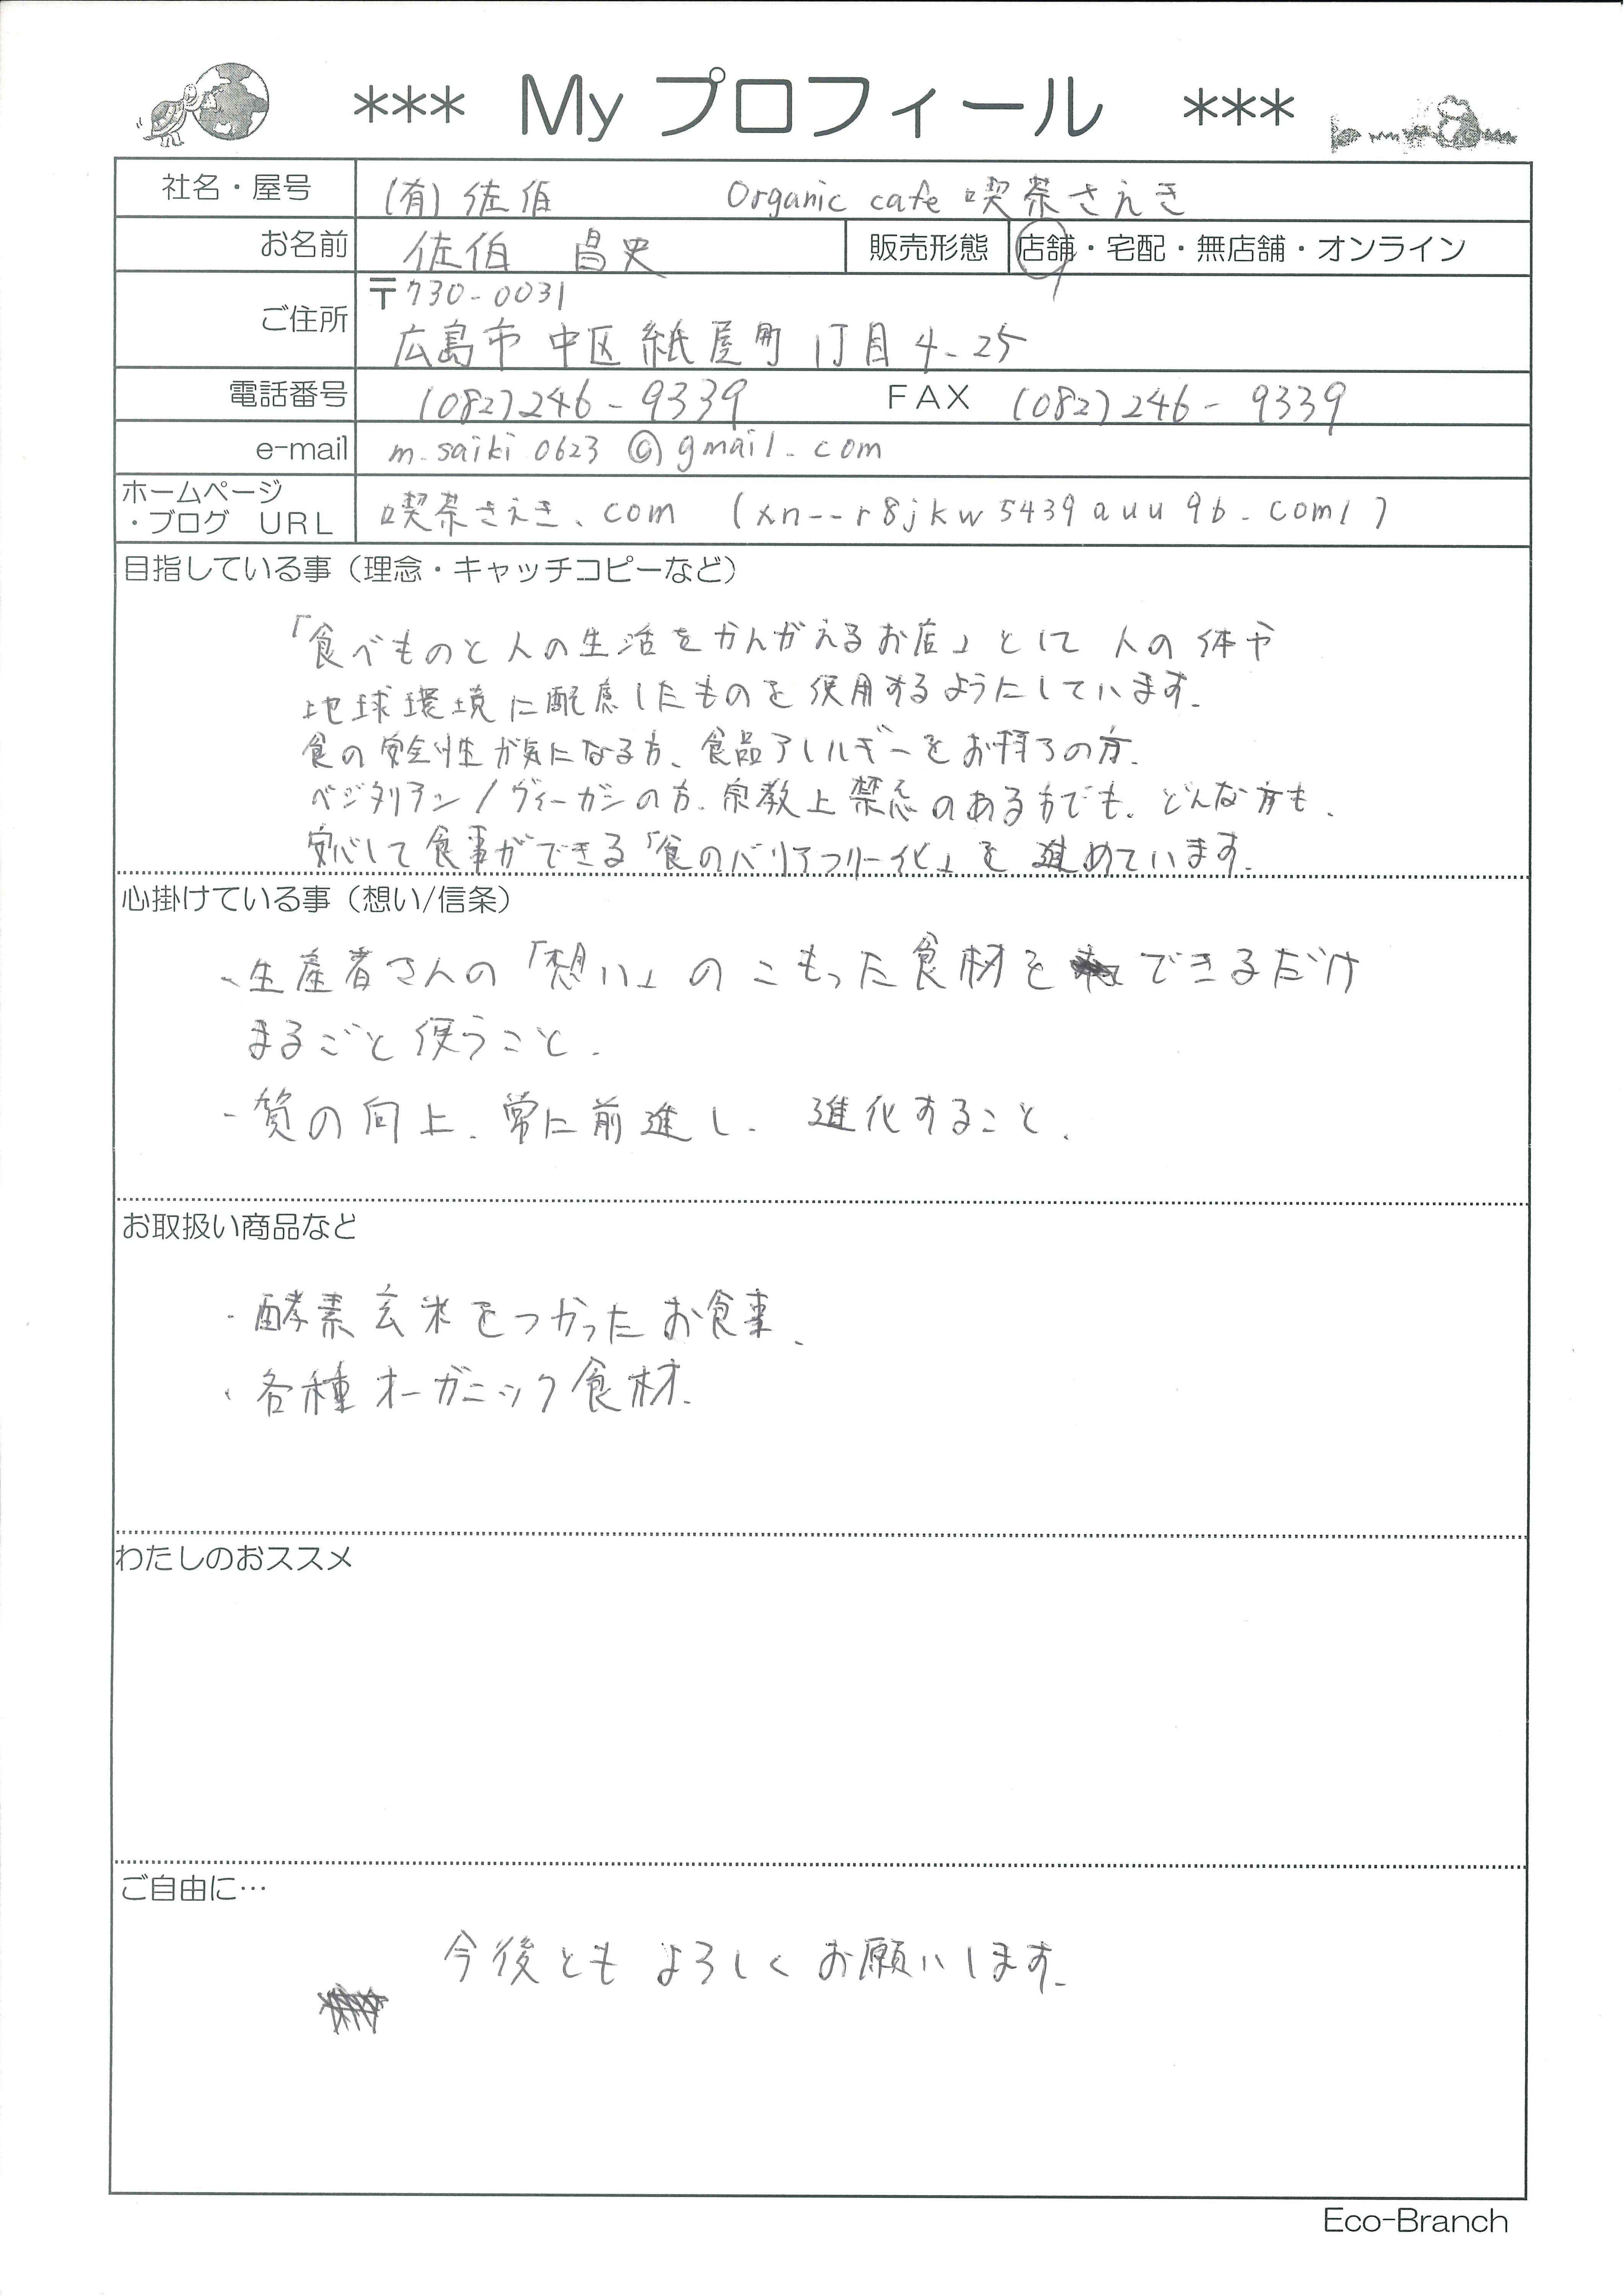 *** My プロフィール ***
社名・屋号 (有) 佐伯 Organic cafe 喫茶さえき
お名前 佐伯 昌史 販売形態 店舗・宅配・無店舗・オンライン
ご住所 〒730-0031
広島市 中区 紙屋町 1丁目 4-25
電話番号 (082)246-9339 FAX (082)246-9339
e-mail m.saiki0623@gmail.com
ホームページ
・ブログ URL 喫茶さえき.com (xn--r8jkw5439auu9b.com/)
目指している事(理念・キャッチコピーなど)
「食べものと人の生活をかんがえるお店」として 人の体や
地球環境に配慮したものを使用するようにしています.
食の安全性が気になる方、食品アレルギーをお持ちの方.
ベジタリアン/ヴィーガンの方.宗教上禁忌のある方でも.どんな方も.
安心して食事ができる「食のバリアフリー化」を進めています.
心掛けている事(想い/信条)
・生産者さんの「想い」のこもった食材をできるだけ
まるごと使うこと.
・質の向上.常に前進し.進化すること.
お取扱い商品など
・酵素玄米をつかったお食事.
・各種オーガニック食材.
わたしのおススメ
ご自由に…
今後ともよろしくお願いします.
Eco-Branch